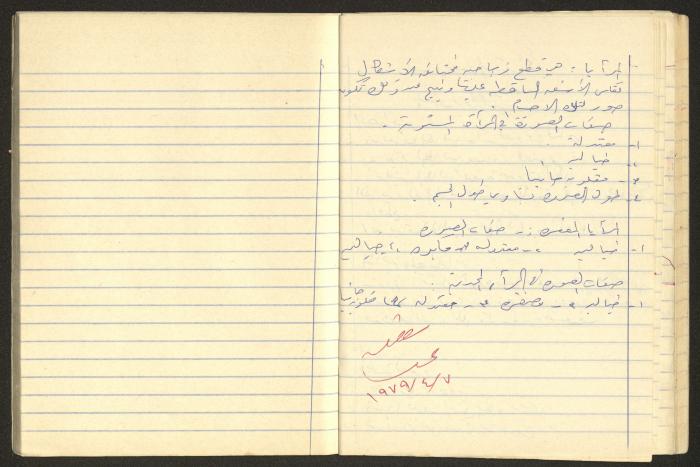 المرآيا :- هي قطع زجاجية مختلفة الأشكال
تعكس الأشعة الساقطة عليها وينتج من ذلك تكون
صور لتلك الاجسام .
صفات الصورة في المرآة المستوية .
١- معتدلة
٢- خيالية
٣- مقلوبة جانبيا
٤- طول الصورة تساوي طول الجسم .
المرآيا المقعرة :- صفات الصورة
١- خيالية ٢- معتدلة
صفات الصورة في المرآة المحدبة .
١- خيالية ٢- مصغرة ٣- معتدلة
١٩٧٩/٤/٧